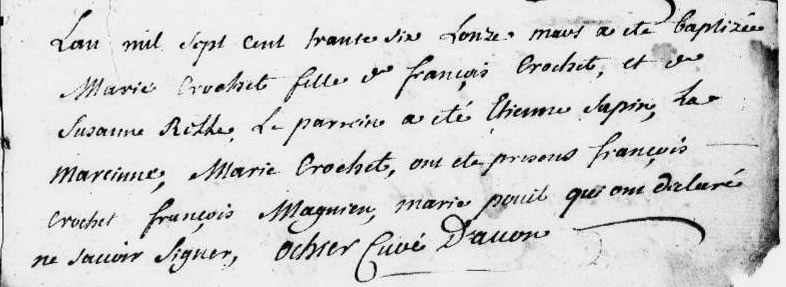 Lan mil sept cent trante sie Lonze mars a eté baptizée
Marie Crochet fille de françois Crochet, et de
Susanne Rille, Le parrein a eté Etienne Sapin, La
mareinne, Marie Crochet, ont ete presens françois
Crochet françois Magnien, marie pouil qui ont declaré
ne sauoir signer, ochier Curé D'auon